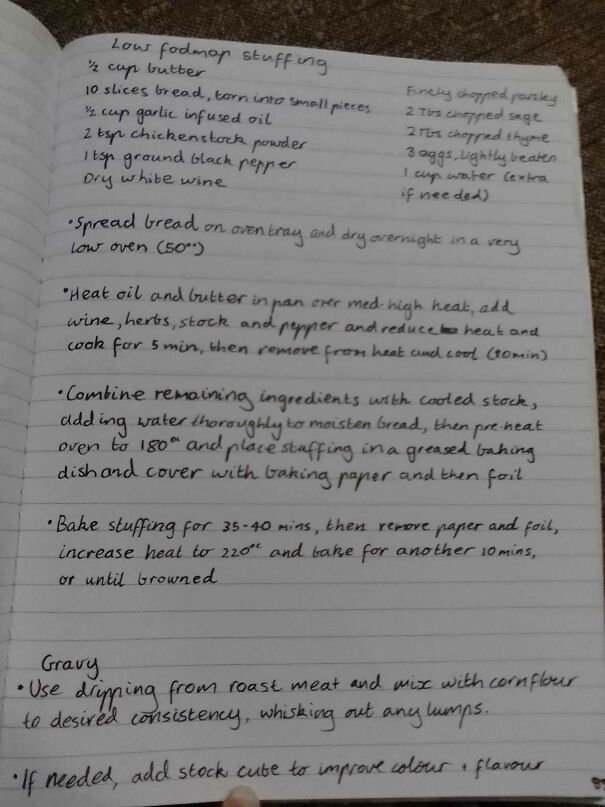 Low fodmap stuffing
½ cup butter
10 slices bread, torn into small pieces
½ cup garlic infused oil
2 tsp chicken stock powder
1 tsp ground black pepper
Dry white wine
Finely chopped parsley
2 Tbs chopped sage
2 Tbs chopped thyme
3 eggs, lightly beaten
1 cup water (extra
if needed)
•Spread bread on oven tray and dry overnight in a very
low oven (50°c)
•Heat oil and butter in pan over med-high heat, add
wine, herbs, stock and pepper and reduce heat and
cook for 5 min, then remove from heat and cool (10min)
•Combine remaining ingredients with cooled stock,
adding water thoroughly to moisten bread, then pre-heat
oven to 180°c and place stuffing in a greased baking
dish and cover with baking paper and then foil
•Bake stuffing for 35-40 mins, then remove paper and foil,
increase heat to 220°c and bake for another 10mins,
or until browned
Gravy
•Use dripping from roast meat and mix with cornflour
to desired consistency, whisking out any lumps.
•If needed, add stock cube to improve colour + flavour